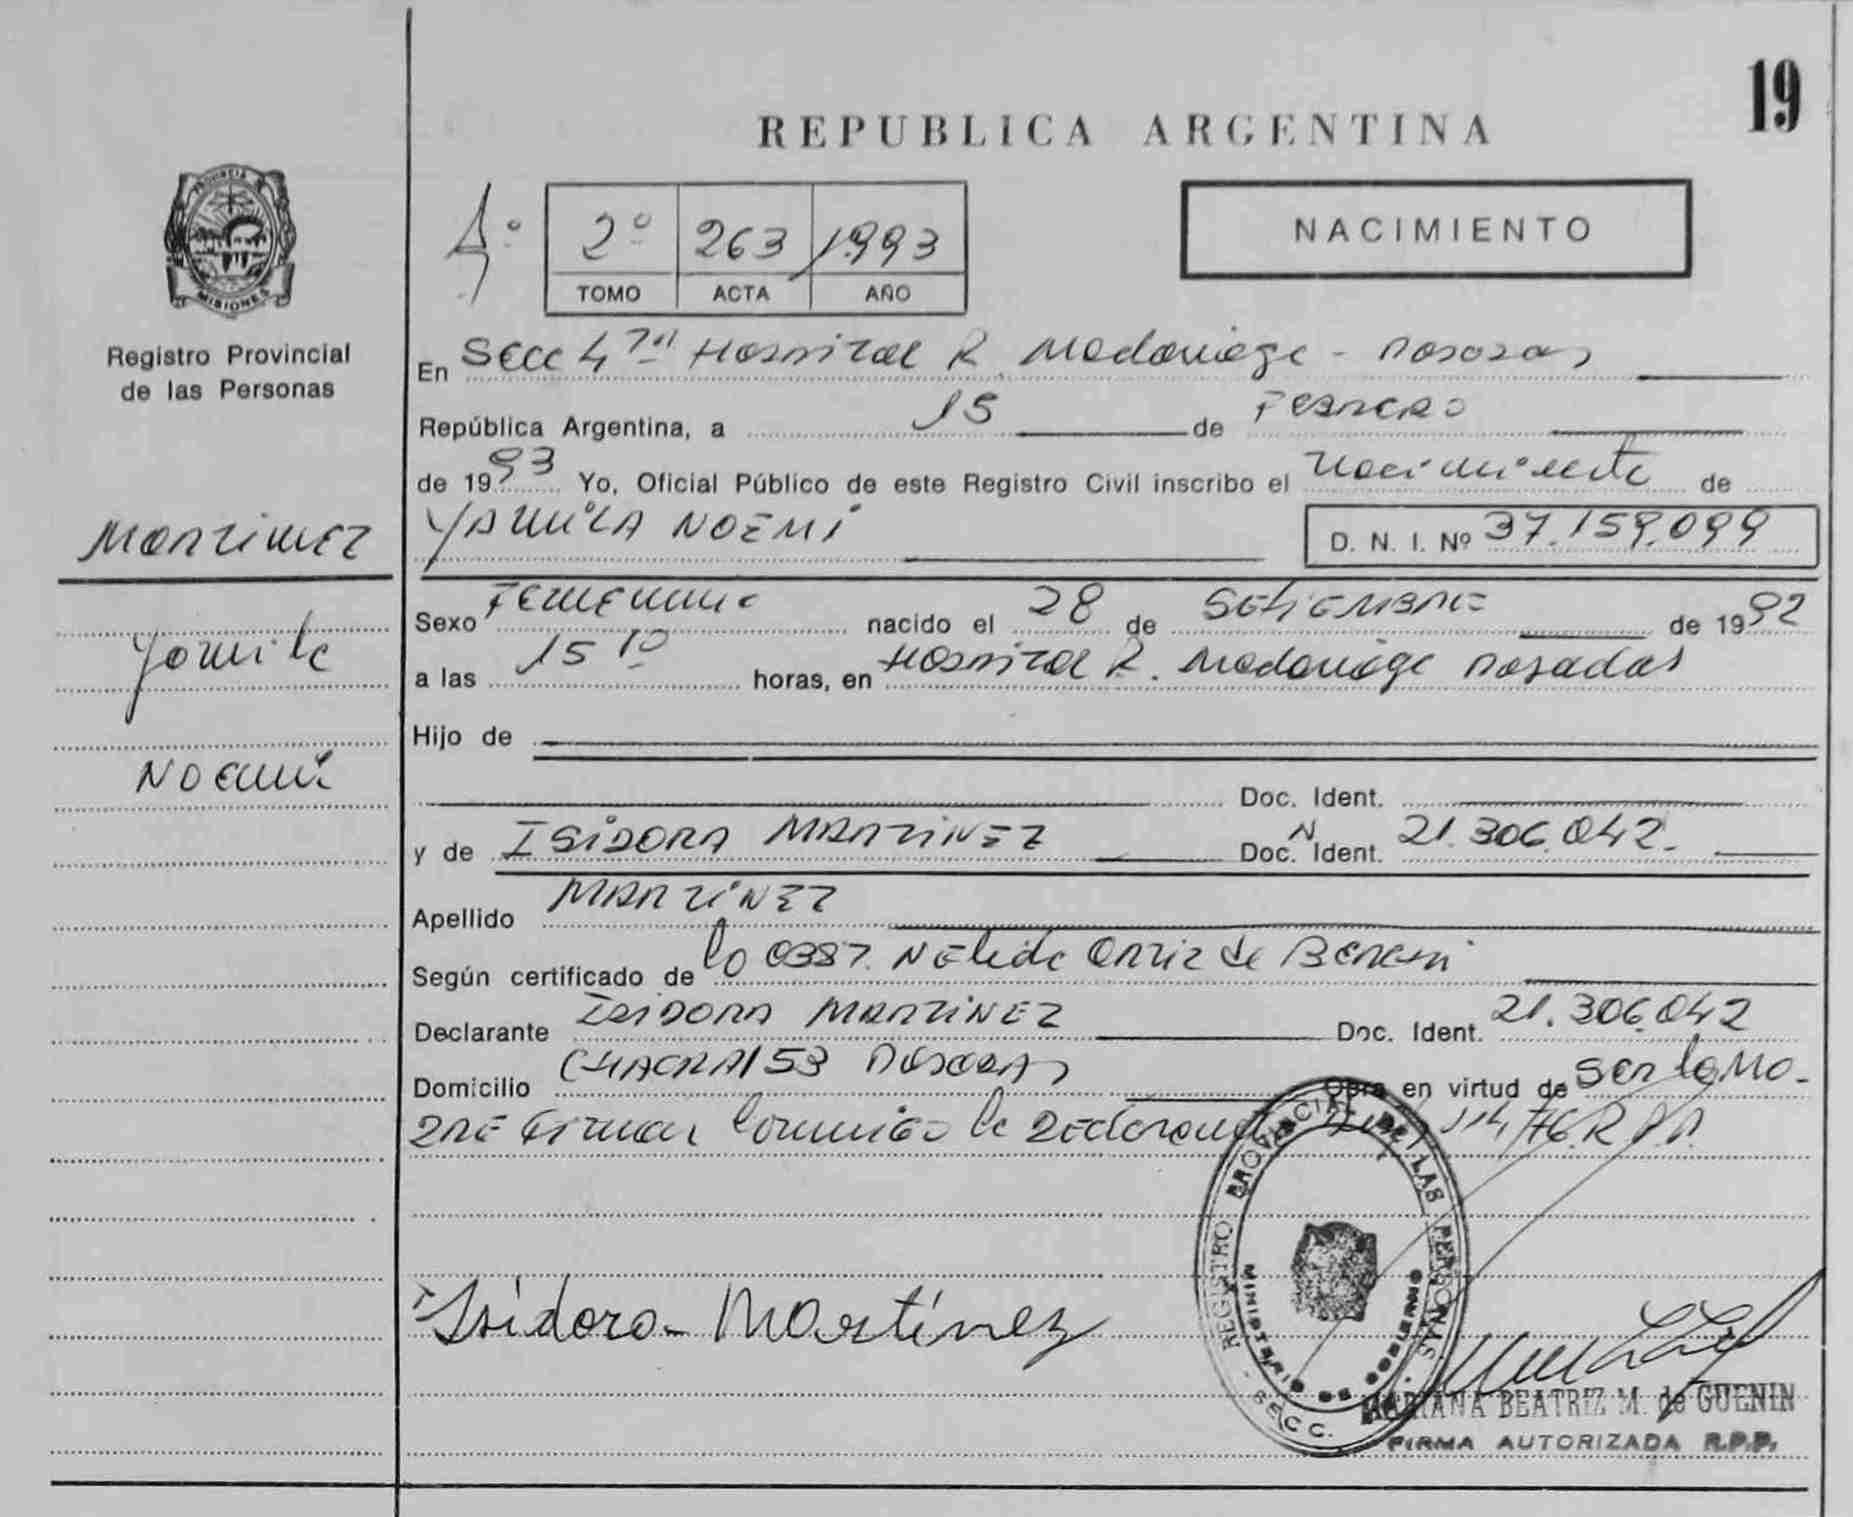 19
REPUBLICA ARGENTINA
PROVINCIA DE
MISIONES
Registro Provincial
de las Personas
4º 2º 263 1993
TOMO ACTA AÑO
NACIMIENTO
En Secc 4ta Hospital R. Madariaga - Posadas
República Argentina, a 15 de Febrero
de 1993 Yo, Oficial Público de este Registro Civil inscribo el Nacimiento de
Martinez
YAMILA NOEMI D. N. I. Nº 37.159.099
Yamila
Noemi
Sexo Femenino nacido el 28 de SETIEMBRE de 1992
a las 15 10 horas, en Hospital R. Madariaga Posadas
Hijo de
Doc. Ident.
y de ISIDORA MARTINEZ Doc. N Ident. 21.306.042.
Apellido MARTINEZ
Según certificado de la 0387. Nelida Ortiz de
Declarante ISIDORA MARTINEZ Doc. Ident. 21.306.042
Domicilio CHACRA 153 Posadas Obra en virtud de Ser la Ma-
dre Firman Conmigo la Declarante 114/76. R.P.P.
REGISTRO PROVINCIAL DE LAS PERSONAS
MINISTERIO DE GOBIERNO
SECC.
Isidora Martínez
MARIANA BEATRIZ M. de GUENIN
FIRMA AUTORIZADA R.P.P.